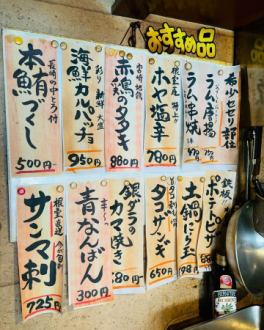 おすすめ品
希少セセリ部位
ラム唐揚
ラム串焼
根室産 特上
ホヤ塩辛
780円
赤貝のタタキ
880円
彩り 新鮮 大盛
海鮮カルパッチョ
950円
長崎の中とろ付
本鮪づくし
500円
鉄板
ポテトピザ
土鍋にり玉
タコザンギ
650円
銀ダラのカマ焼き
580円
青なんばん
300円
根室直送
サンマ刺
725円